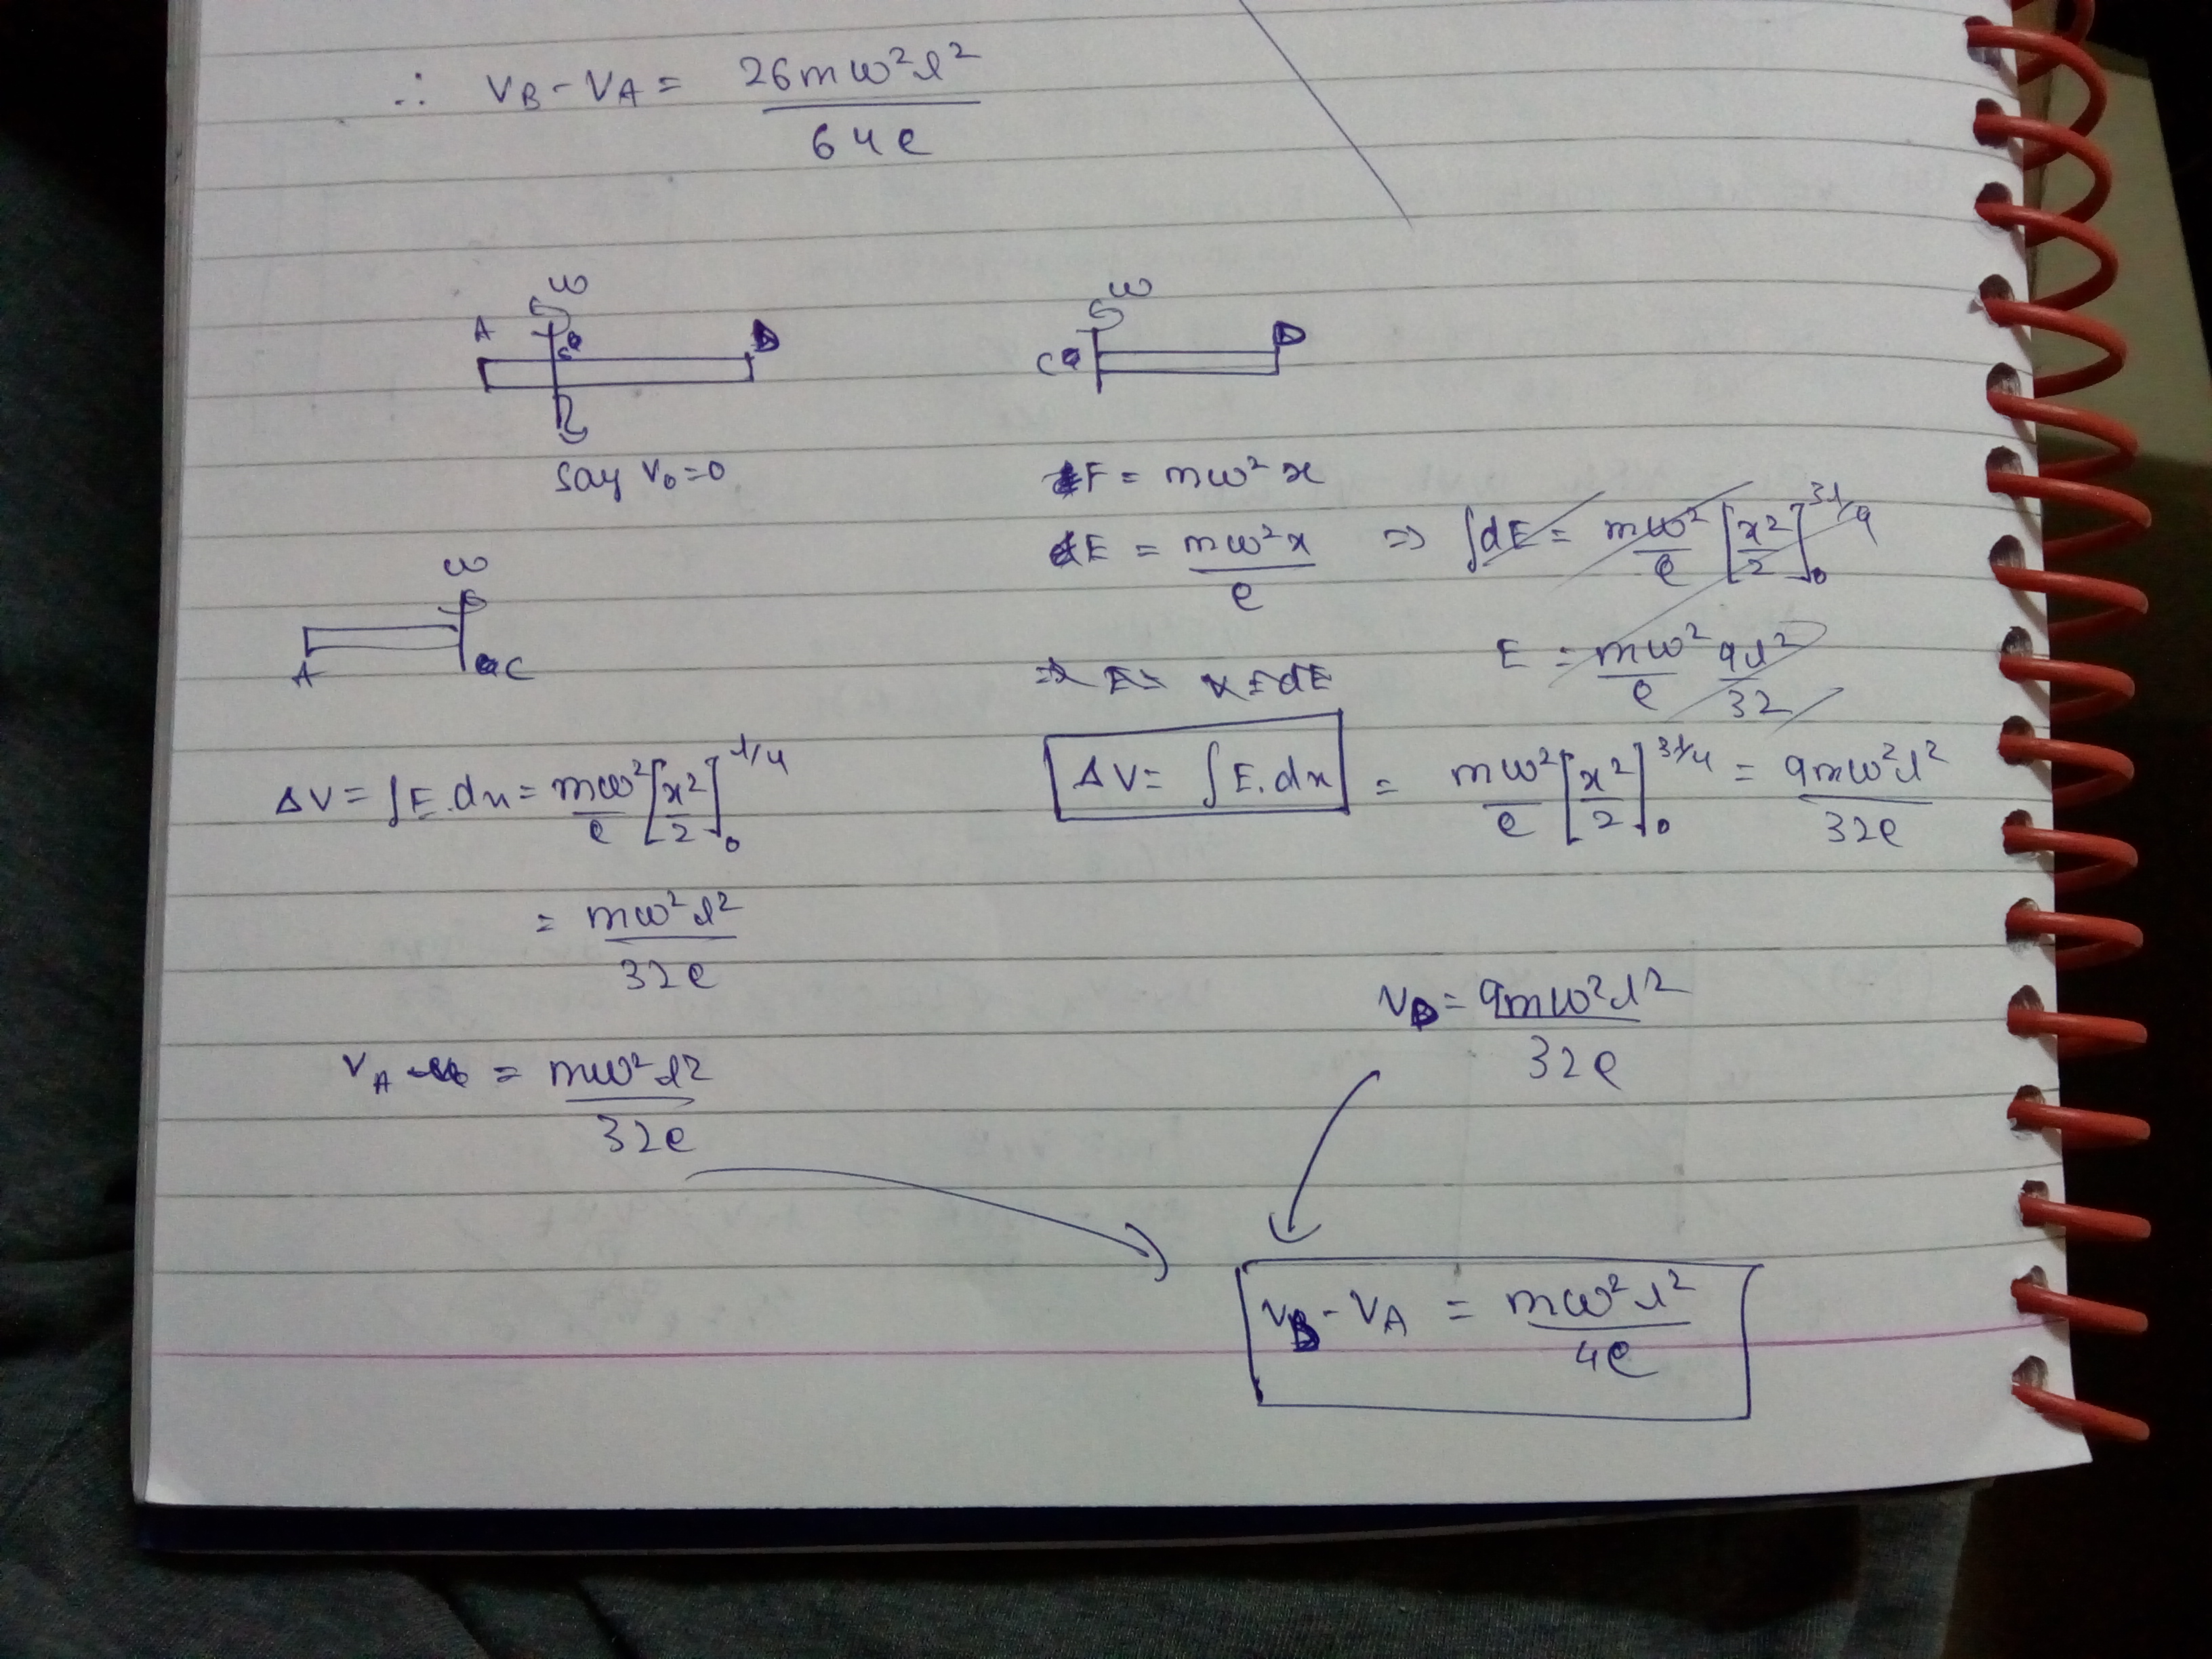 ∴ VB - VA = 26mω²l² / 64e
ω
A
C
B
say V₀=0
ω
C
B
F = mω²x
E = mω²x / e ⇒ ∫dE = mω²/e [x²/2]₀^3l/4
ω
A
C
E = mω²/e 9l²/32
ΔV = ∫E.dx = mω²/e [x²/2]₀^l/4
ΔV = ∫E.dx = mω²/e [x²/2]₀^3l/4 = 9mω²l² / 32e
= mω²l² / 32e
VB = 9mω²l² / 32e
VA = mω²l² / 32e
VB - VA = mω²l² / 4e